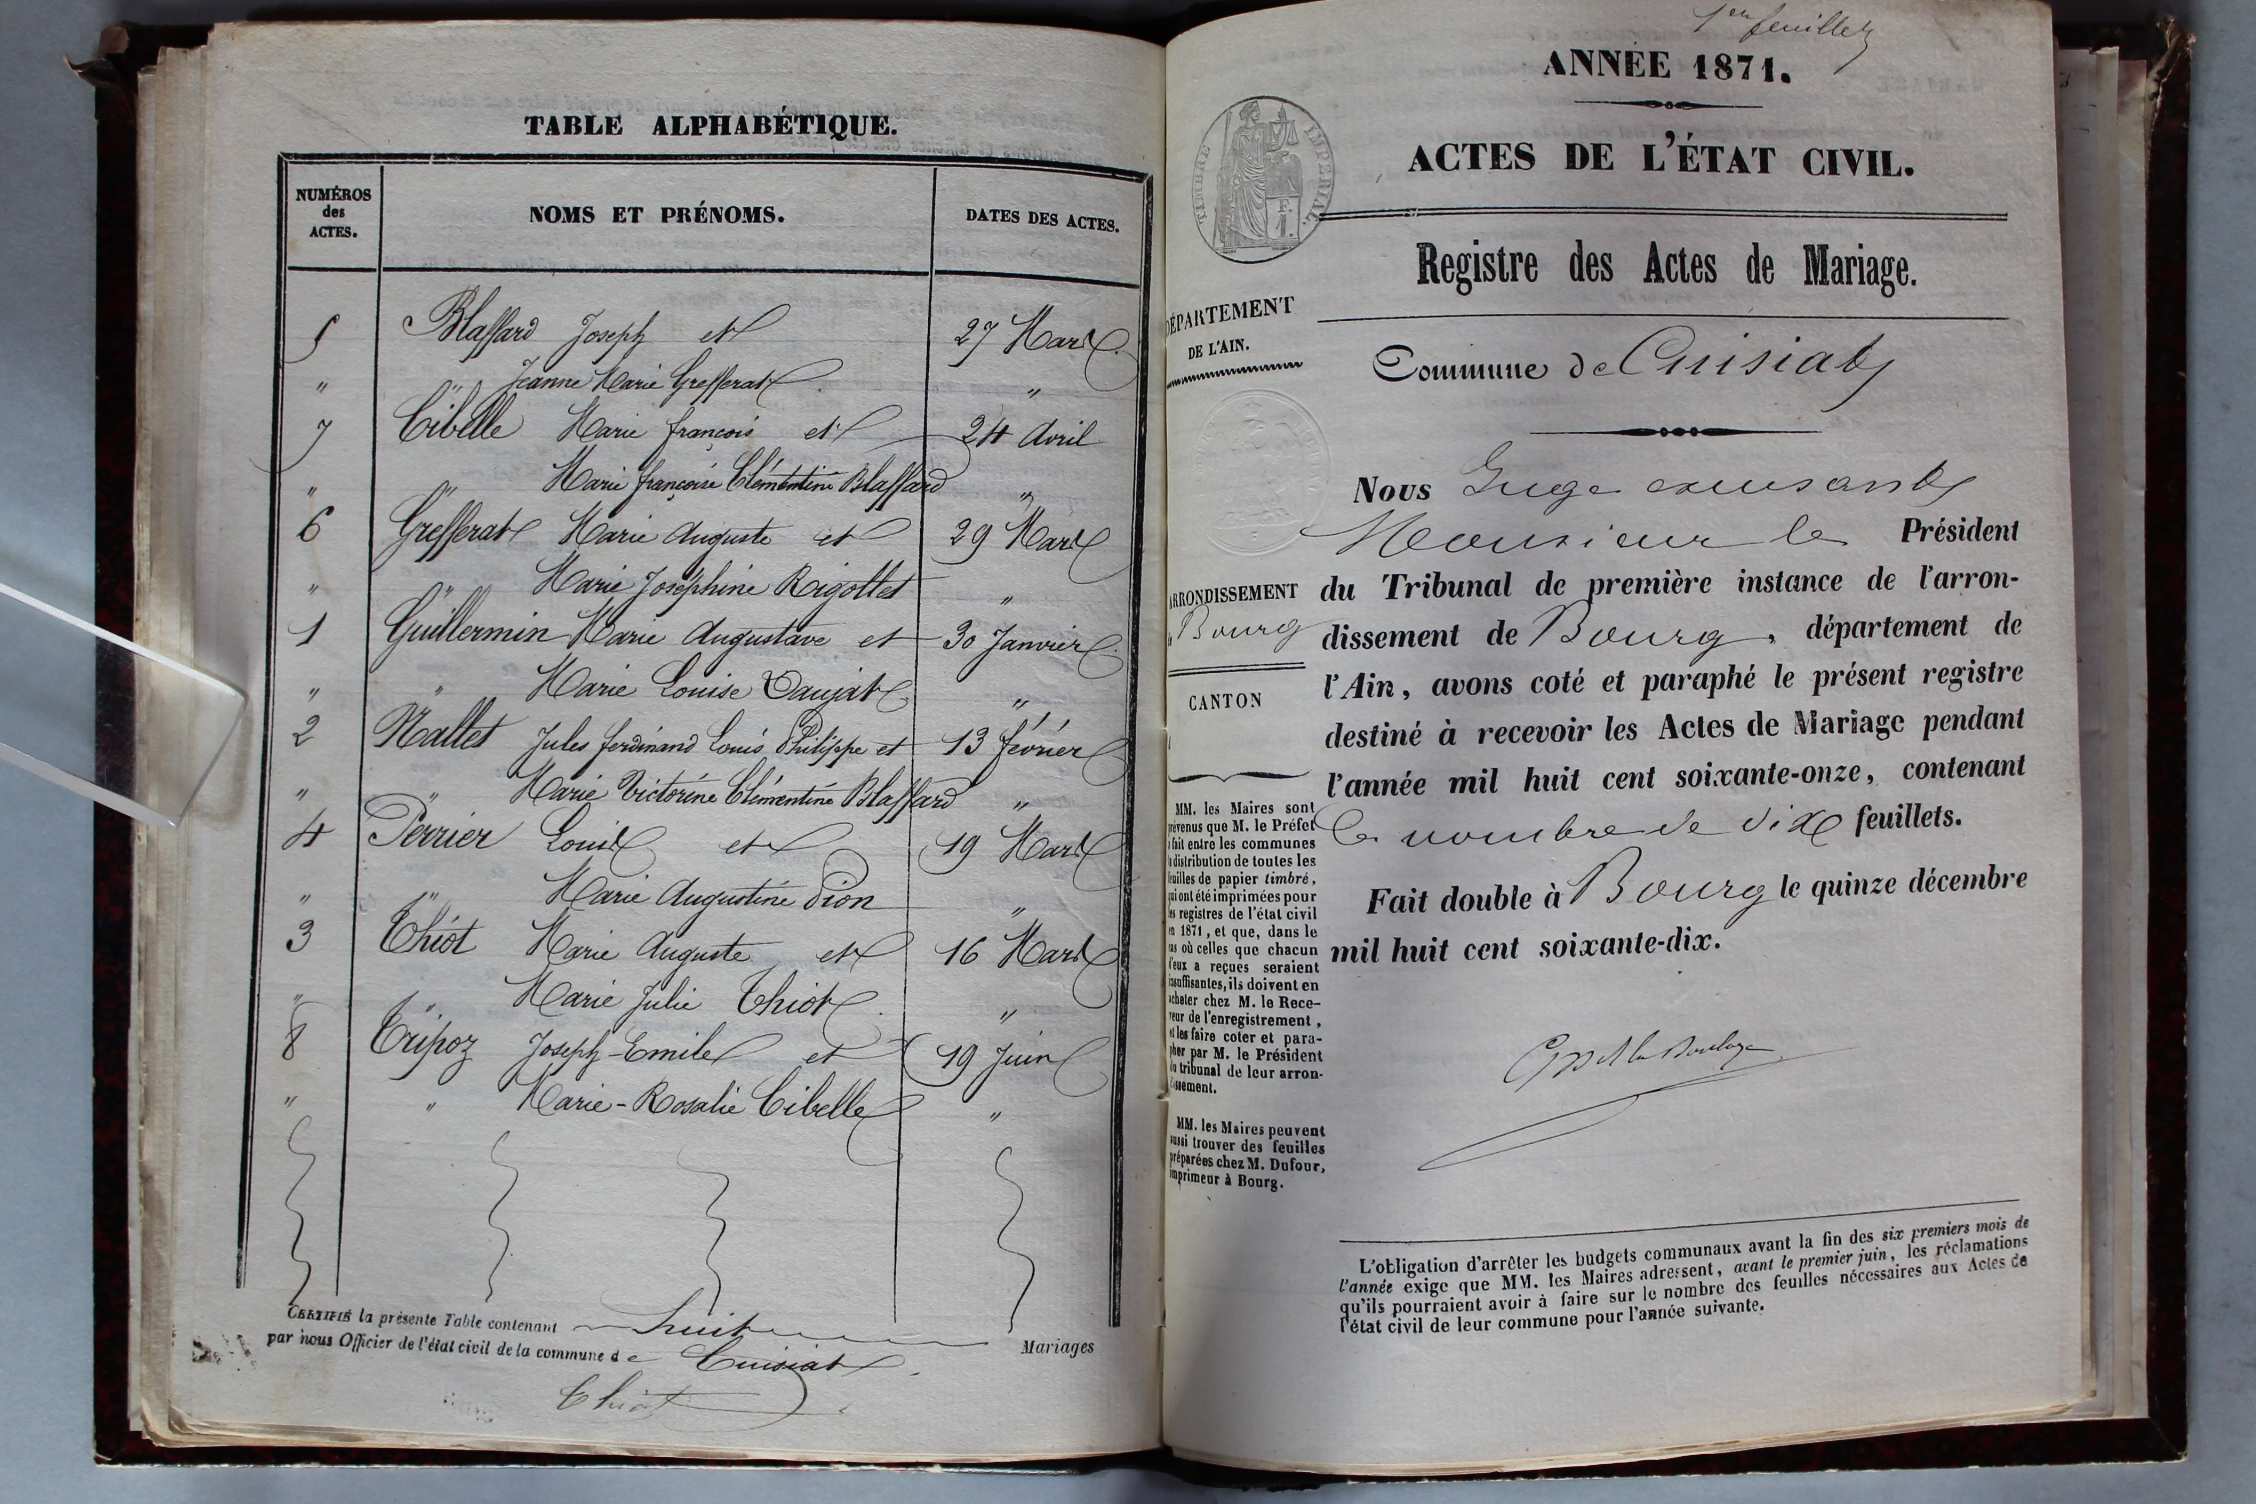 TABLE ALPHABÉTIQUE.
NUMÉROS
des
ACTES.
NOMS ET PRÉNOMS.
DATES DES ACTES.
5 Blaffard Joseph et 27 Mars
" " Jeanne Marie Grefferat "
7 Cibelle Marie françois et 24 Avril
" " Marie françoise Clémentine Blaffard "
6 Grefferat Marie Auguste et 29 Mars
" " Marie Joséphine Rigollet "
1 Guillermin Marie Augustave et 30 Janvier
" " Marie Louise Daujat "
2 Mallet Jules ferdinand Louis Philippe et 13 février
" " Marie Victorine Clémentine Blaffard "
4 Perrier Louis et 19 Mars
" " Marie Augustine Pion "
3 Thiot Marie Auguste et 16 Mars
" " Marie Julie Thiot "
8 Tripoz Joseph-Emile et 19 Juin
" " Marie-Rosalie Cibelle "
CERTIFIÉ la présente Table contenant huit Mariages
par nous Officier de l'état civil de la commune de Cuisiat
Thiot
1er feuillet
ANNÉE 1871.
ACTES DE L'ÉTAT CIVIL.
TIMBRE IMPÉRIAL
F.
1.
Registre des Actes de Mariage.
DÉPARTEMENT
DE L'AIN.
Commune de Cuisiat
ARRONDISSEMENT
Bourg
CANTON
MM. les Maires sont
prévenus que M. le Préfet
a fait entre les communes
la distribution de toutes les
feuilles de papier timbré,
qui ont été imprimées pour
les registres de l'état civil
en 1871, et que, dans le
cas où celles que chacun
d'eux a reçues seraient
insuffisantes, ils doivent en
acheter chez M. le Rece-
veur de l'enregistrement,
et les faire coter et para-
pher par M. le Président
du tribunal de leur arron-
dissement.
MM. les Maires peuvent
aussi trouver des feuilles
préparées chez M. Dufour,
imprimeur à Bourg.
Nous Juge
Monsieur le Président
du Tribunal de première instance de l'arron-
dissement de Bourg, département de
l'Ain, avons coté et paraphé le présent registre
destiné à recevoir les Actes de Mariage pendant
l'année mil huit cent soixante-onze, contenant
le nombre de dix feuillets.
Fait double à Bourg le quinze décembre
mil huit cent soixante-dix.
L'obligation d'arrêter les budgets communaux avant la fin des six premiers mois de
l'année exige que MM. les Maires adressent, avant le premier juin, les réclamations
qu'ils pourraient avoir à faire sur le nombre des feuilles nécessaires aux Actes de
l'état civil de leur commune pour l'année suivante.